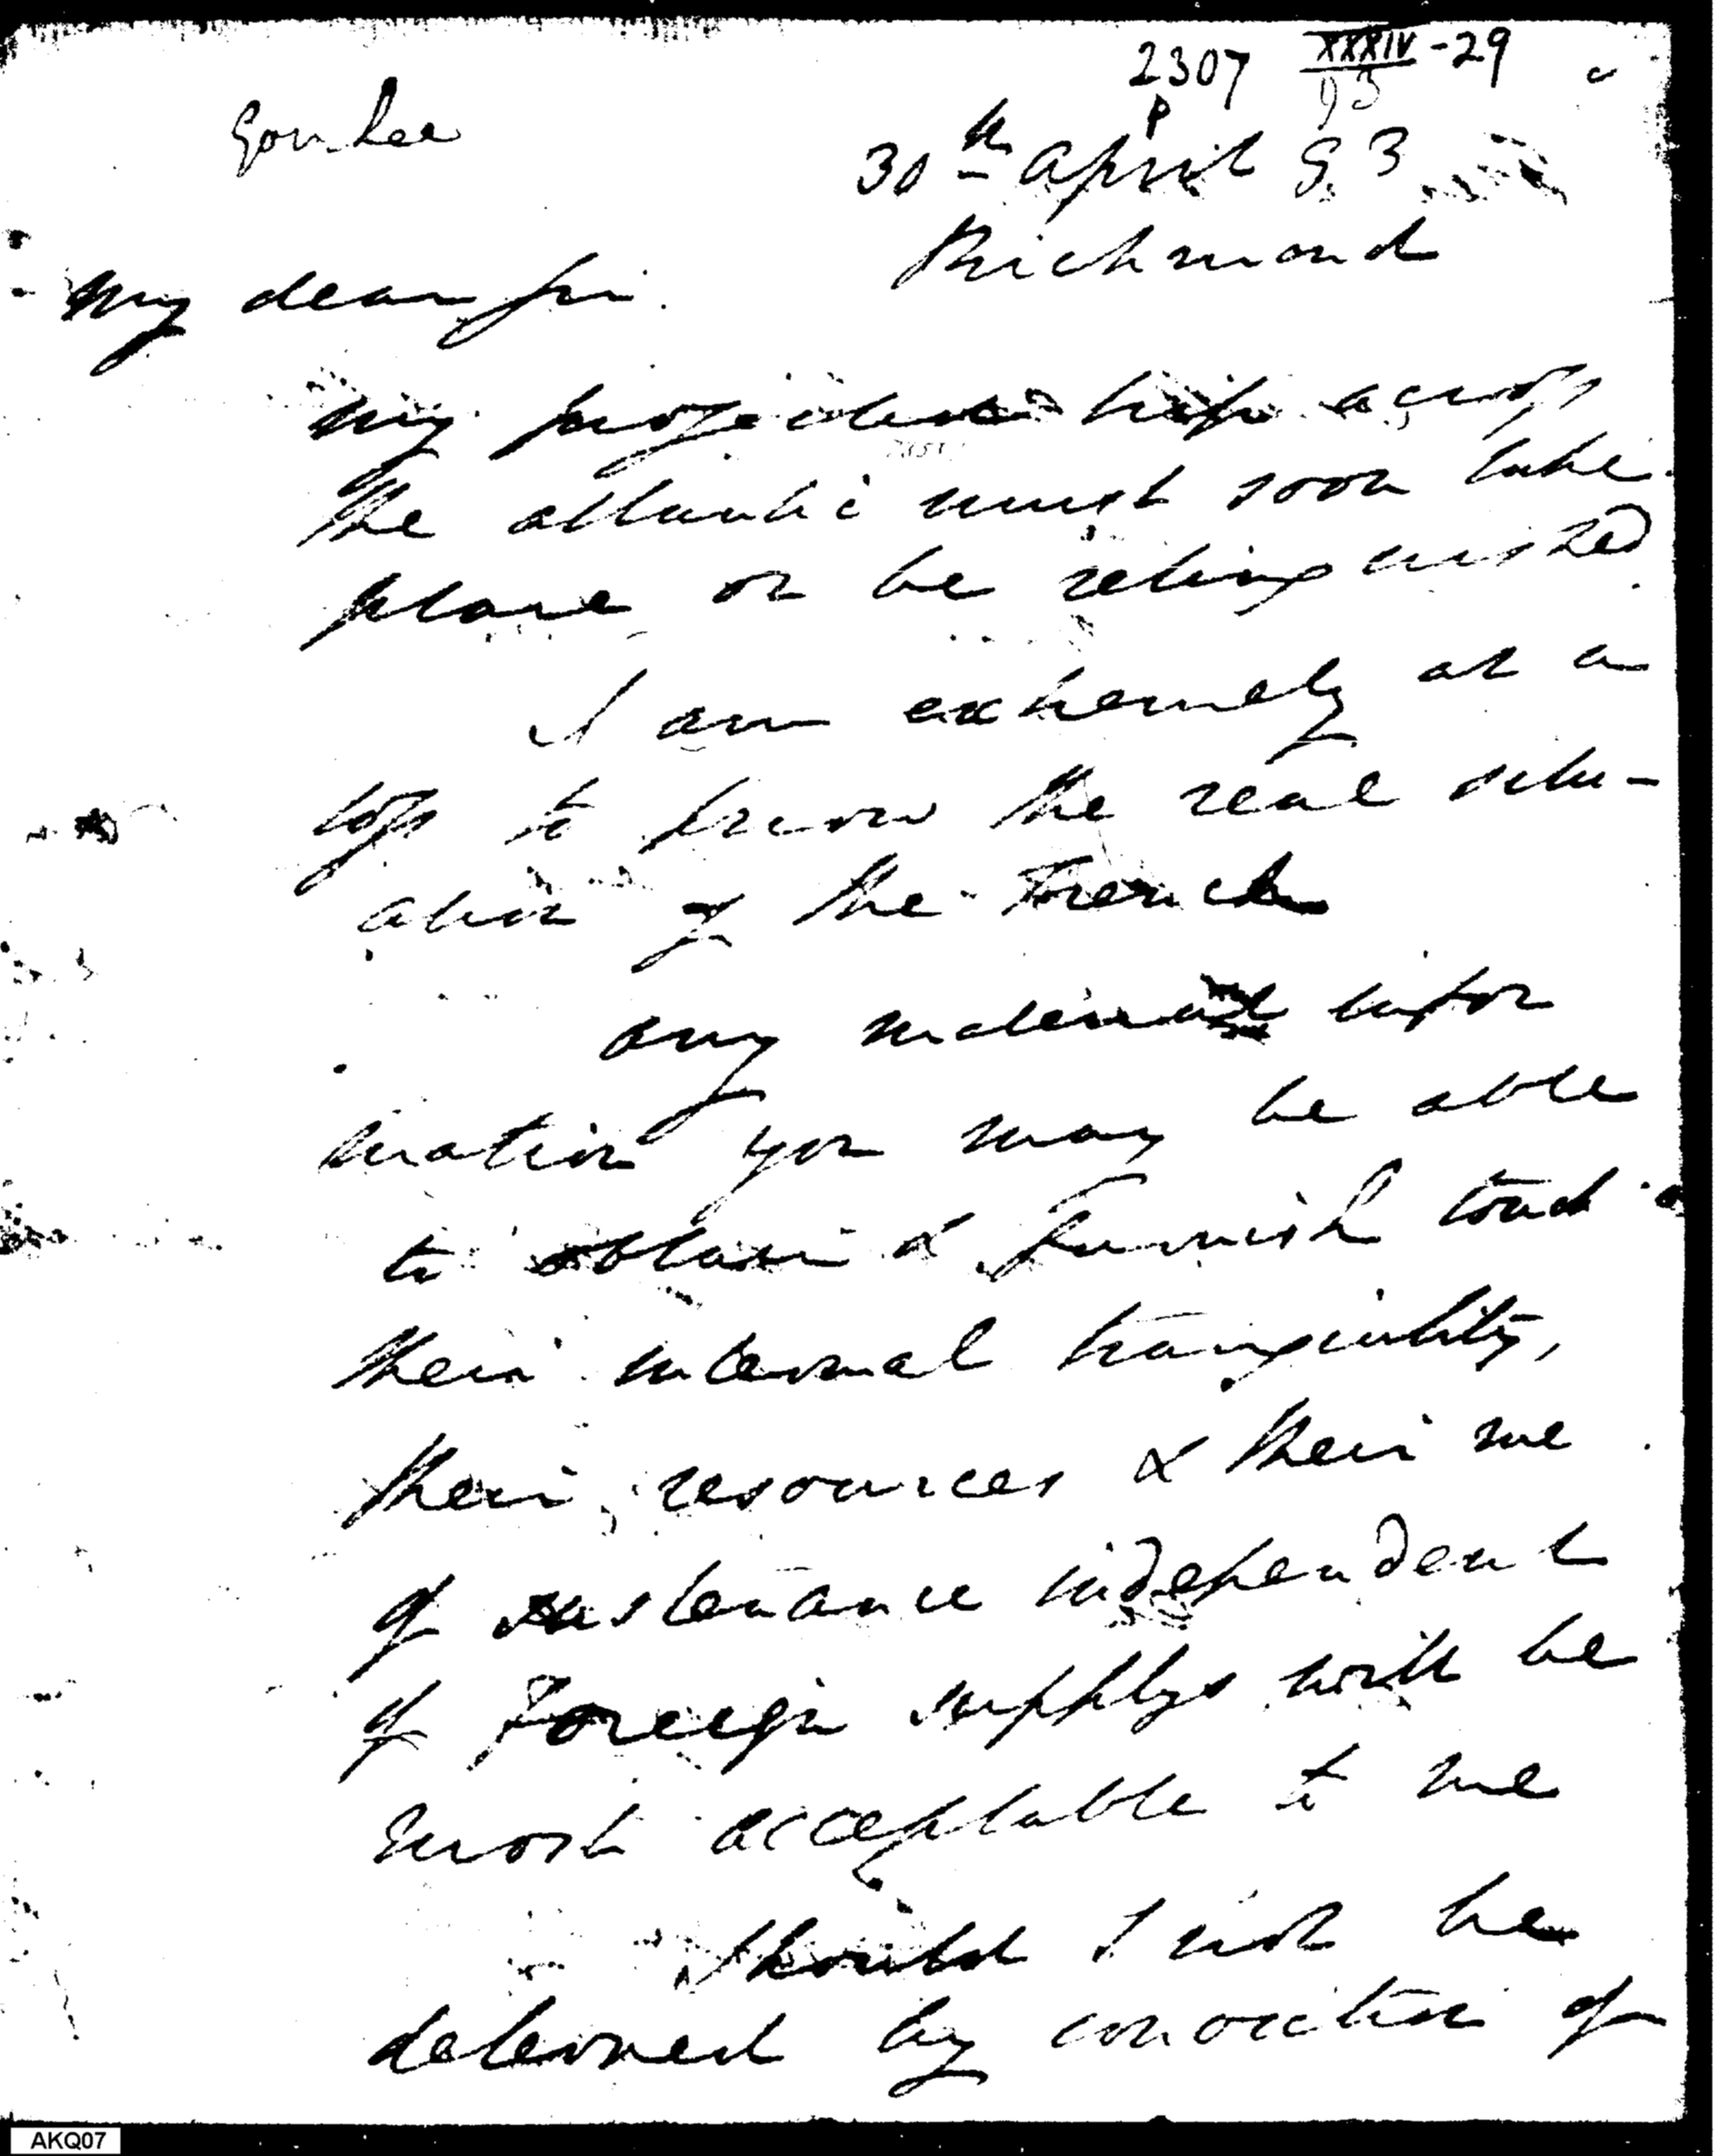 2307 XXXIV-29
P 93
Gov. Lee
30th april 93
Richmond
My dear sir.
my projected trip across
the atlantic must soon take
place or be relinquished
I am extremely at a
loss to know the real situ-
ation of the French
any material infor
mation you may be able
to obtain & furnish touch
their internal tranquility,
their resources & their me
of sustenance independent
of Foreign supplys will be
most acceptable to me
Should I not be
deterred by conviction of
AKQ07